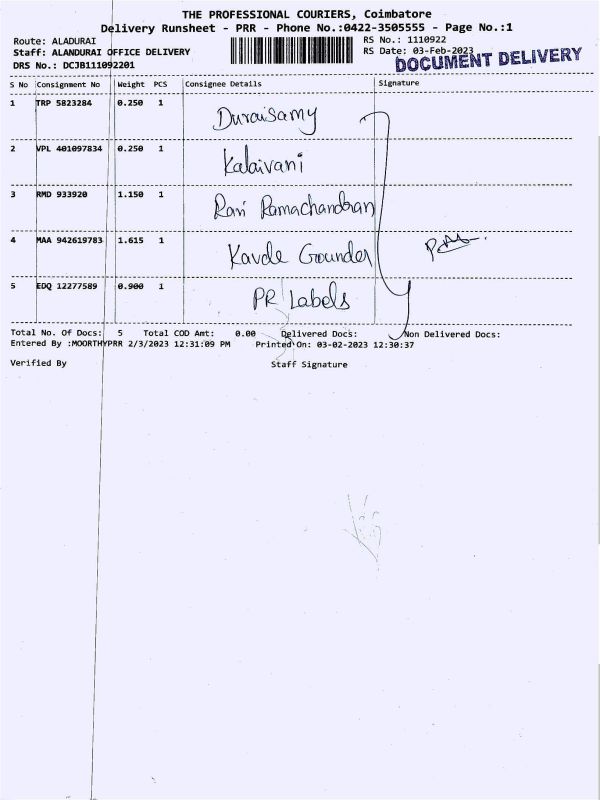 THE PROFESSIONAL COURIERS, Coimbatore
Delivery Runsheet - PRR - Phone No.:0422-3505555 - Page No.:1
Route: ALADURAI RS No.: 1110922
Staff: ALANDURAI OFFICE DELIVERY RS Date: 03-Feb-2023
DOCUMENT DELIVERY
DRS No.: DCJB111092201
S No Consignment No Weight PCS Consignee Details Signature
1 TRP 5823284 0.250 1 Duraisamy
2 VPL 401097834 0.250 1 Kalaivani
3 RMD 933920 1.150 1 Ravi Ramachandran
4 MAA 942619783 1.615 1 Kavde Grounder
5 EDQ 12277589 0.900 1 PR Labels
Total No. Of Docs: 5 Total COD Amt: 0.00 Delivered Docs: Non Delivered Docs:
Entered By :MOORTHYPRR 2/3/2023 12:31:09 PM Printed On: 03-02-2023 12:30:37
Verified By Staff Signature